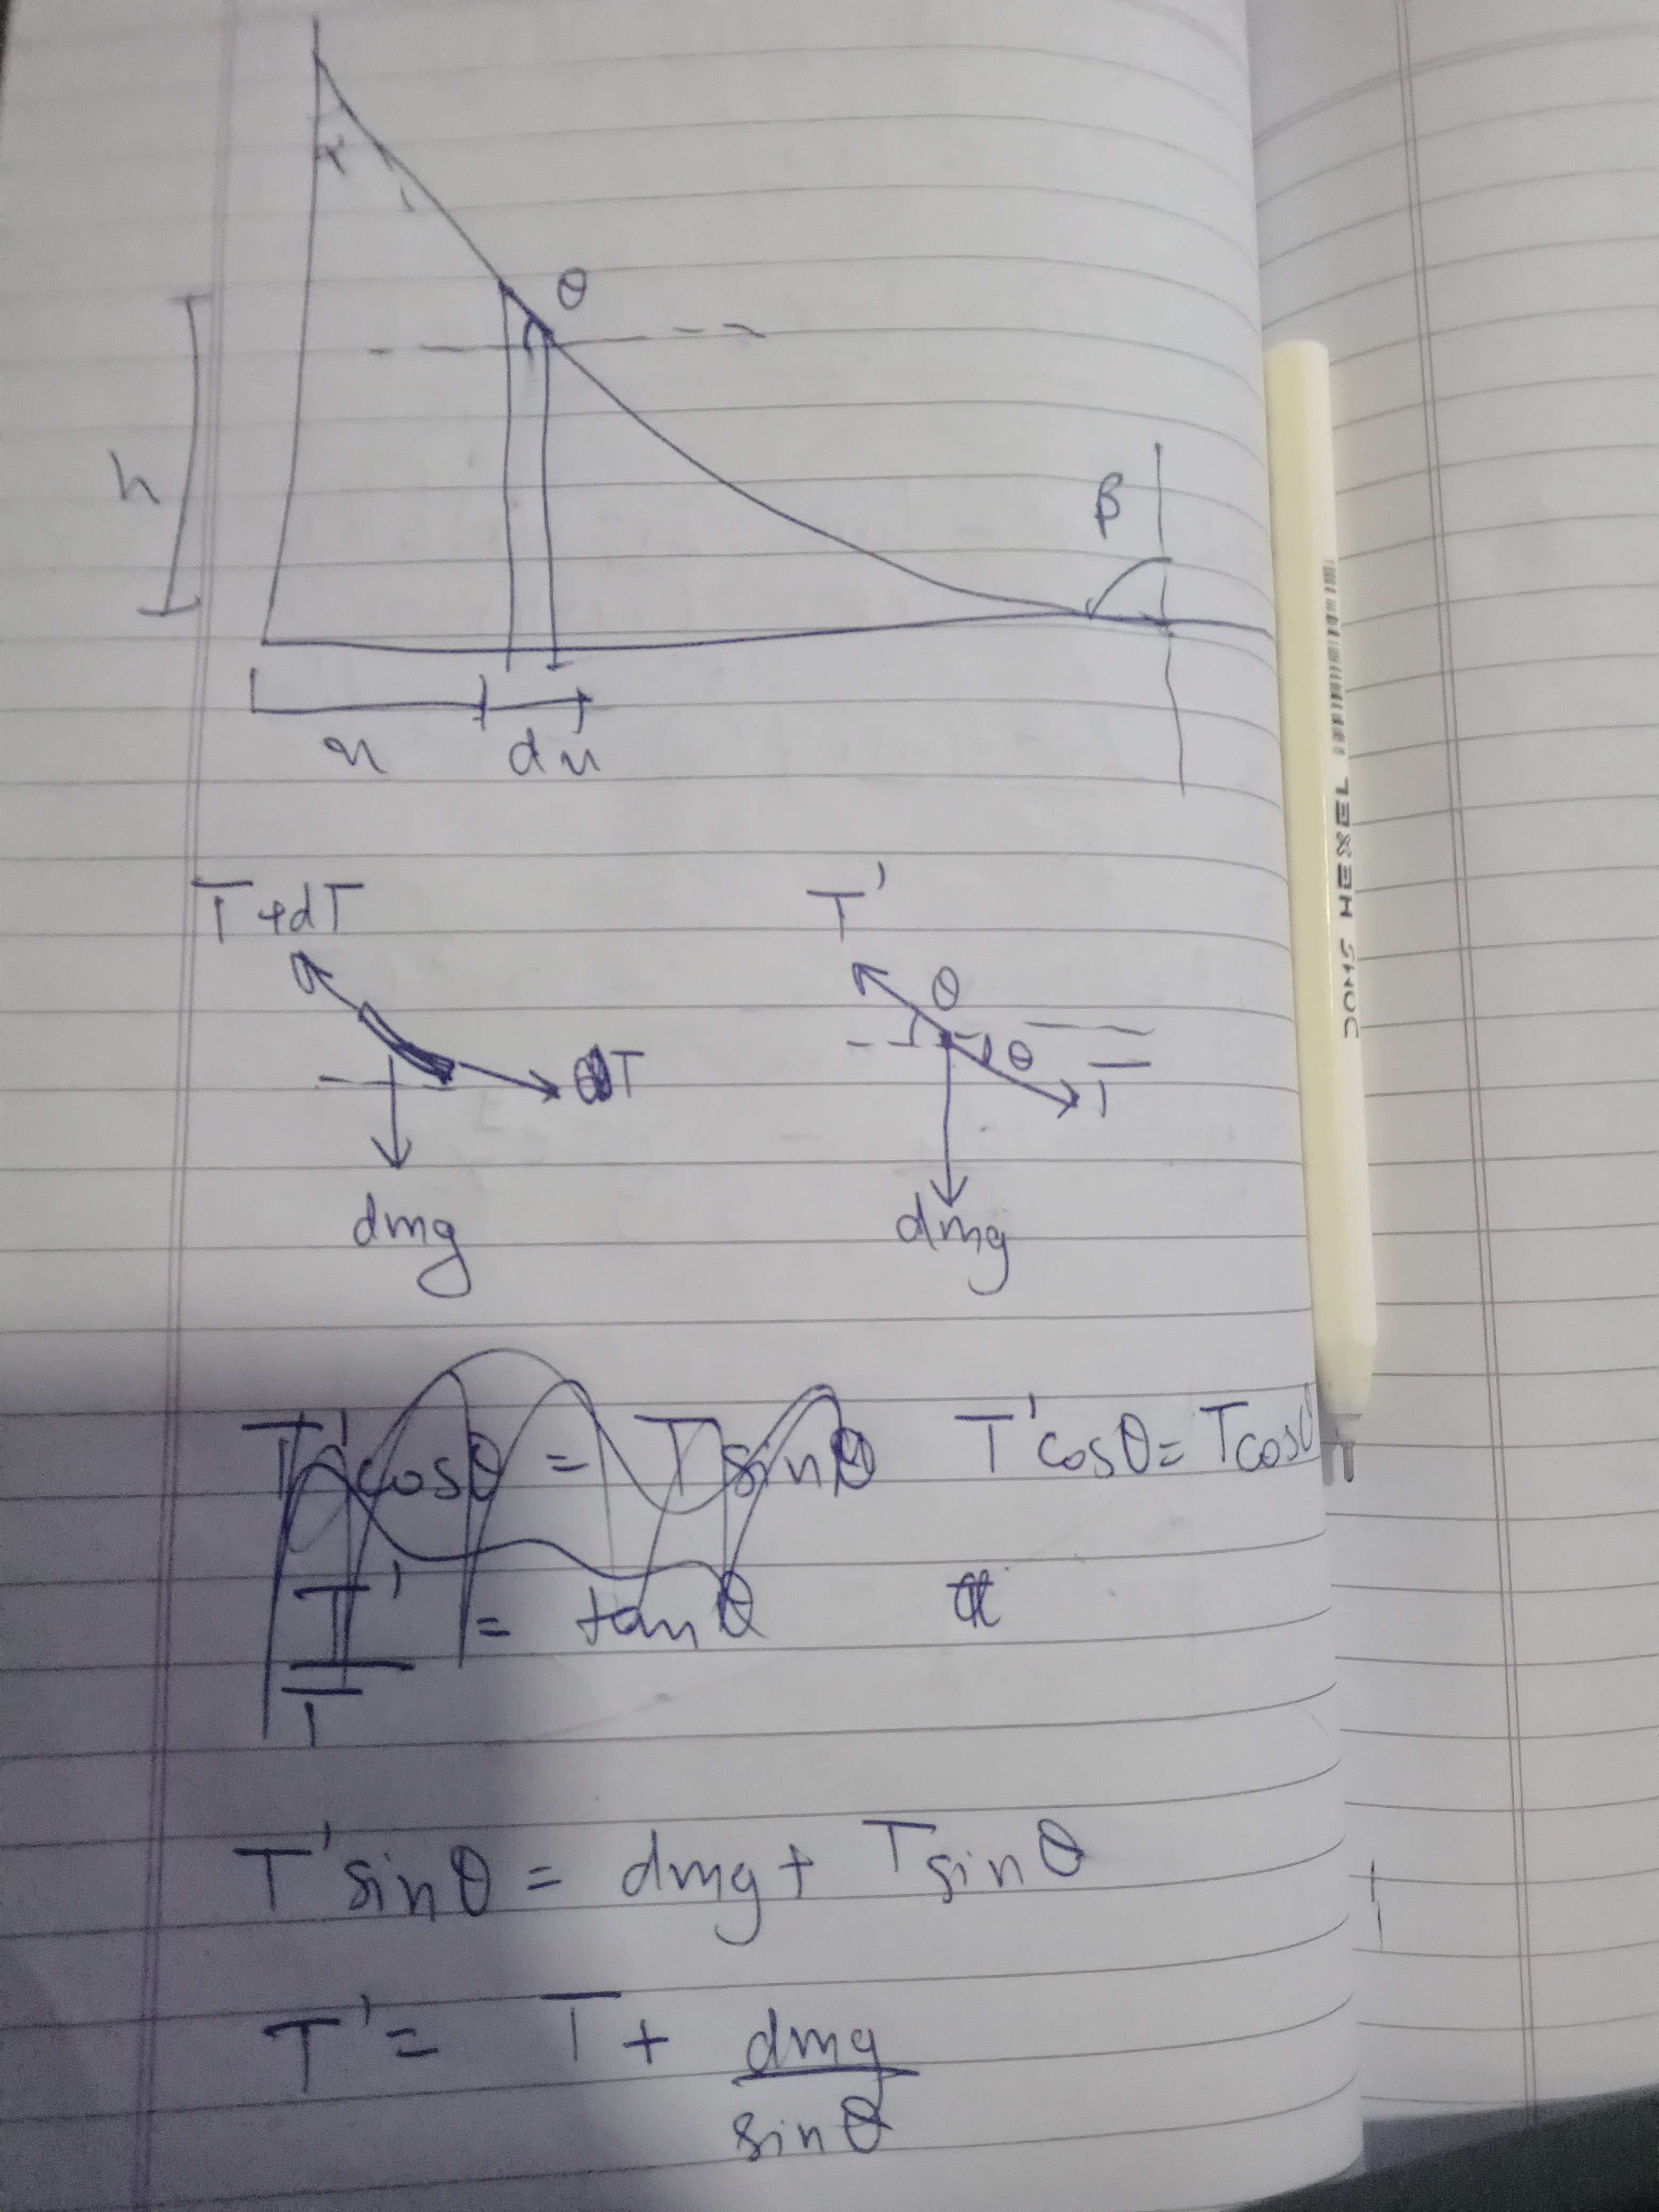 θ
β
h
x
dx
T+dT
T'
θ
θ
T
T
dmg
dmg
T'cosθ = Tsinθ T'cosθ = Tcosθ
T'/T = tanθ
T'sinθ = dmg + Tsinθ
T' = T + dmg/sinθ
DOMS HEXEL